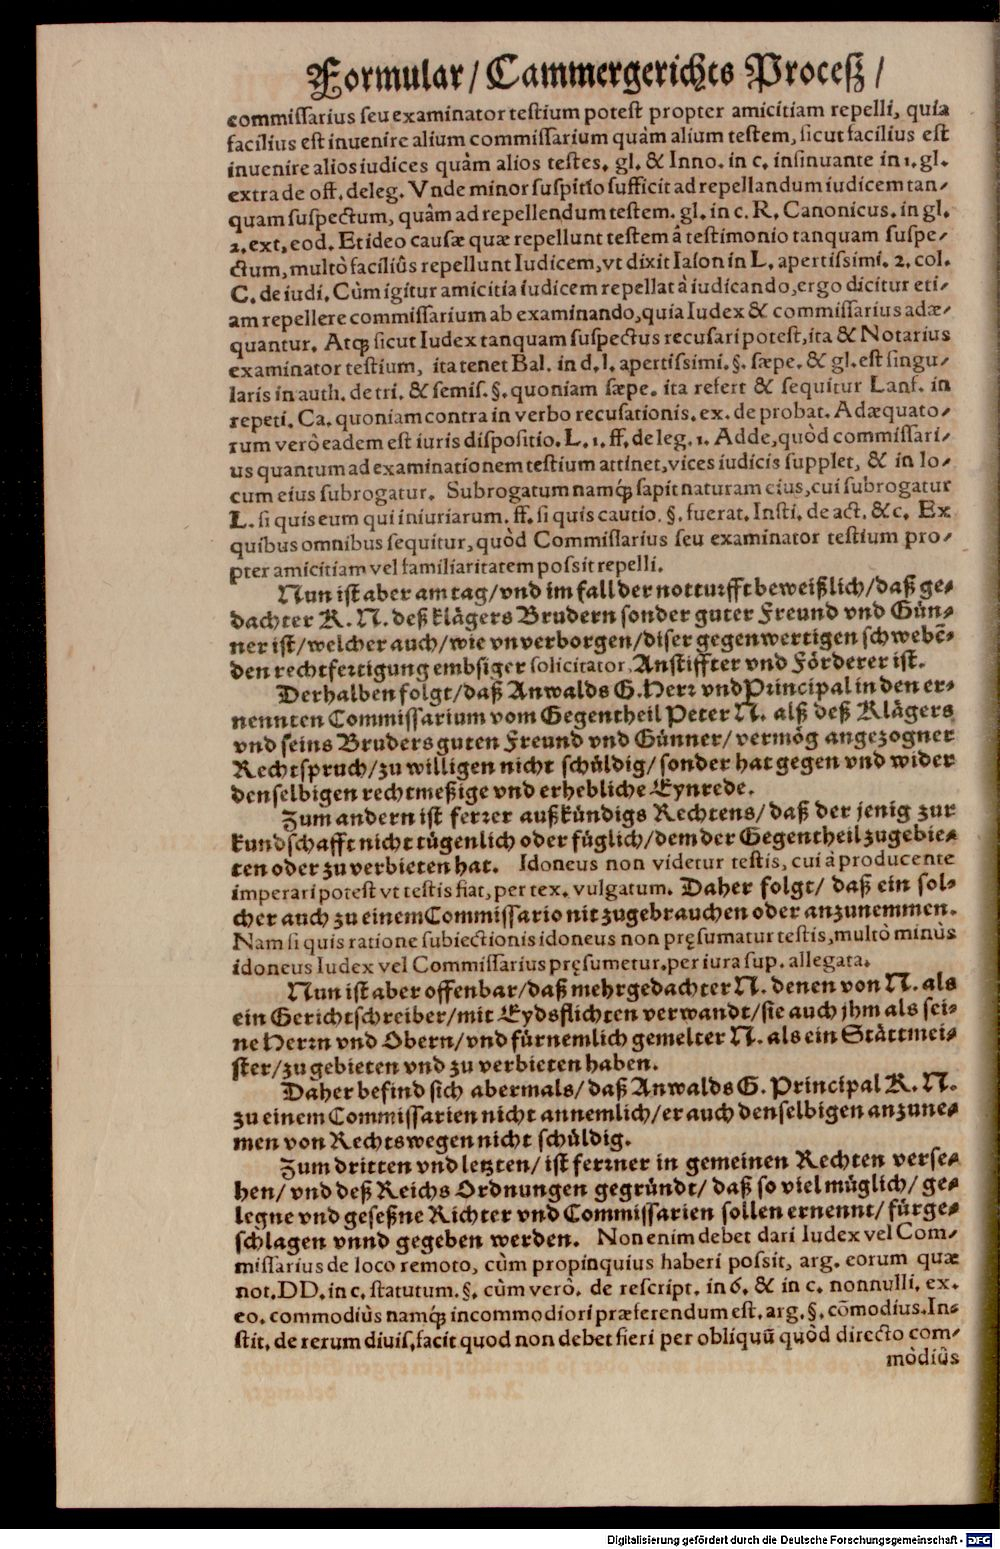 Formular / Cammergerichts Proceſz /
commiſſarius ſeu examinator teſtium poteſt propter amicitiam repelli, quia
facilius eſt inuenire alium commiſſarium quàm alium teſtem, ſicut facilius eſt
inuenire alios iudices quàm alios teſtes. gl. & Inno. in c. inſinuante in 1. gl.
extra de off. deleg. Vnde minor ſuſpitio ſufficit ad repellandum iudicem tan⸗
quam ſuſpectum, quàm ad repellendum teſtem. gl. in c. R. Canonicus. in gl.
2. ext. eod. Et ideo cauſæ quæ repellunt teſtem â teſtimonio tanquam ſuſpe⸗
ctum, multò faciliûs repellunt Iudicem, vt dixit Iaſon in L. apertiſſimi. 2. col.
C. de iudi. Cùm igitur amicitia iudicem repellat â iudicando, ergo dicitur eti⸗
am repellere commiſſarium ab examinando, quia Iudex & commiſſarius adæ⸗
quantur. Atq; ſicut Iudex tanquam ſuſpectus recuſari poteſt, ita & Notarius
examinator teſtium, ita tenet Bal. in d. l. apertiſsimi. §. ſæpe. & gl. eſt ſingu⸗
laris in auth. de tri. & ſemiſ. §. quoniam ſæpe. ita refert & ſequitur Lanf. in
repeti. Ca. quoniam contra in verbo recuſationis. ex. de probat. Adæquato⸗
rum verò eadem eſt iuris diſpoſitio. L. 1. ff. de leg. 1. Adde, quòd commiſſari⸗
us quantum ad examinationem teſtium attinet, vices iudicis ſupplet, & in lo⸗
cum eius ſubrogatur. Subrogatum namq; ſapit naturam eius, cui ſubrogatur
L. ſi quis eum qui iniuriarum. ff. ſi quis cautio. §. fuerat. Inſti. de act. &c. Ex
quibus omnibus ſequitur, quòd Commiſſarius ſeu examinator teſtium pro⸗
pter amicitiam vel familiaritatem poſsit repelli.
Nun iſt aber am tag / vnd im fall der notturfft beweißlich / daß ge⸗
dachter K. N. deß klägers Brudern ſonder guter Freund vnd Gün⸗
ner iſt / welcher auch / wie vnverborgen / diſer gegenwertigen ſchwebē⸗
den rechtfertigung embſiger ſolicitator, Anſtiffter vnd Förderer iſt.
Derhalben folgt / daß Anwalds G. Herr vnd Principal in den er⸗
nennten Commiſſarium vom Gegentheil Peter N. alß deß Klägers
vnd ſeins Bruders guten Freund vnd Günner / vermög angezogner
Rechtſpruch / zu willigen nicht ſchüldig / ſonder hat gegen vnd wider
denſelbigen rechtmeßige vnd erhebliche Eynrede.
Zum andern iſt ferrer außkündigs Rechtens / daß der jenig zur
kundſchafft nicht tügenlich oder füglich / dem der Gegentheil zugebie⸗
ten oder zu verbieten hat. Idoneus non videtur teſtis, cui à producente
imperari poteſt vt teſtis fiat, per tex. vulgatum. Daher folgt / daß ein ſol⸗
cher auch zu einem Commiſſario nit zugebrauchen oder anzunemmen.
Nam ſi quis ratione ſubiectionis idoneus non pręſumatur teſtis, multò minùs
idoneus Iudex vel Commiſſarius pręſumetur. per iura ſup. allegata.
Nun iſt aber offenbar / daß mehrgedachter N. denen von N. als
ein Gerichtſchreiber / mit Eydsflichten verwandt / ſie auch jhm als ſei⸗
ne Herrn vnd Obern / vnd fürnemlich gemelter N. als ein Stättmei⸗
ſter / zu gebieten vnd zu verbieten haben.
Daher befind ſich abermals / daß Anwalds G. Principal K. N.
zu einem Commiſſarien nicht annemlich / er auch denſelbigen anzune⸗
men von Rechtswegen nicht ſchüldig.
Zum dritten vnd letzten / iſt ferrner in gemeinen Rechten verſe⸗
hen / vnd deß Reichs Ordnungen gegründt / daß ſo viel müglich / ge⸗
legne vnd geſeßne Richter vnd Commiſſarien ſollen ernennt / fürge⸗
ſchlagen vnnd gegeben werden. Non enim debet dari Iudex vel Com⸗
miſſarius de loco remoto, cùm propinquius haberi poſsit, arg. eorum quæ
not. DD. in c. ſtatutum. §. cùm verò. de reſcript. in 6. & in c. nonnulli. ex.
eo. commodiùs namq; incommodiori præferendum eſt. arg. §. cōmodius. In⸗
ſtit. de rerum diuiſ. facit quod non debet fieri per obliquū quòd directo com⸗
mòdiûs
Digitalisierung gefördert durch die Deutsche Forschungsgemeinschaft - DFG